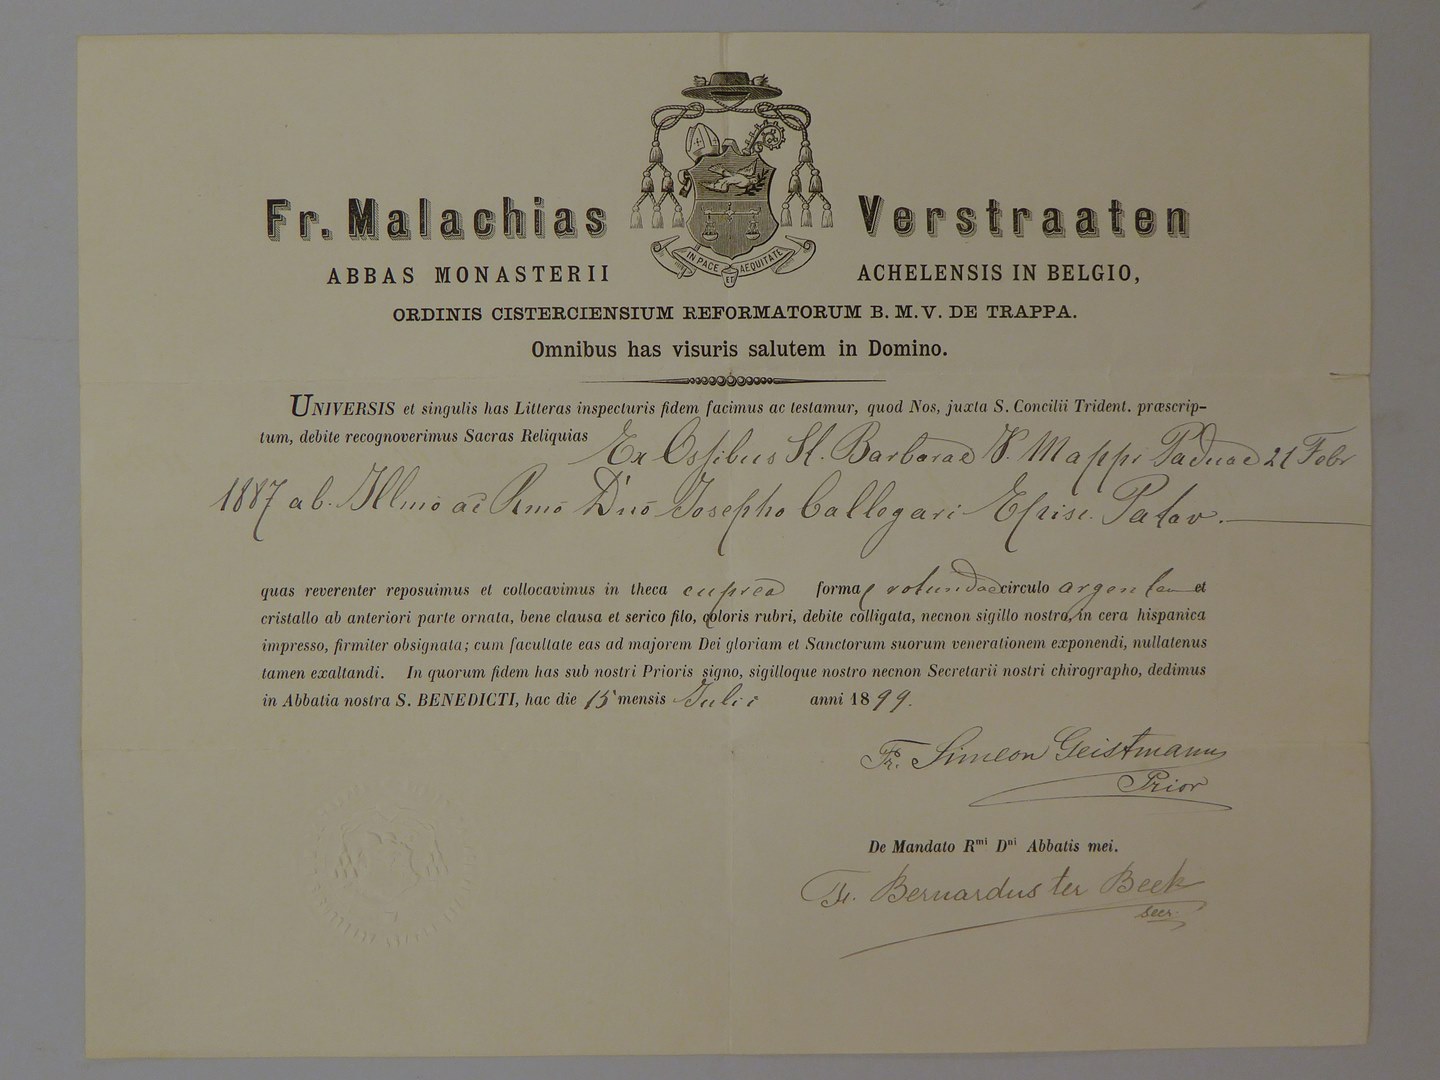 Fr. Malachias Verstraaten
IN PACE ET AEQUITATE
ABBAS MONASTERII ACHELENSIS IN BELGIO,
ORDINIS CISTERCIENSIUM REFORMATORUM B. M. V. DE TRAPPA.
Omnibus has visuris salutem in Domino.
UNIVERSIS et singulis has Litteras inspecturis fidem facimus ac testamur, quod Nos, juxta S. Concilii Trident. præscrip-
tum, debite recognoverimus Sacras Reliquias Ex Ossibus St. Barbarae V. M appi Paduae 21 Febr
1887 ab. Illmo ac Rmo Dno Josepho Callegari Episc. Patav.
quas reverenter reposuimus et collocavimus in theca cuprea forma rotundae circulo argenteu et
cristallo ab anteriori parte ornata, bene clausa et serico filo, coloris rubri, debite colligata, necnon sigillo nostro, in cera hispanica
impresso, firmiter obsignata; cum facultate eas ad majorem Dei gloriam et Sanctorum suorum venerationem exponendi, nullatenus
tamen exaltandi. In quorum fidem has sub nostri Prioris signo, sigilloque nostro necnon Secretarii nostri chirographo, dedimus
in Abbatia nostra S. BENEDICTI, hac die 15 mensis Julii anni 1899.
Fr. Simeon Geistmann
Prior
De Mandato Rmi Dni Abbatis mei.
Fr. Bernardus ter Beek
Secr.